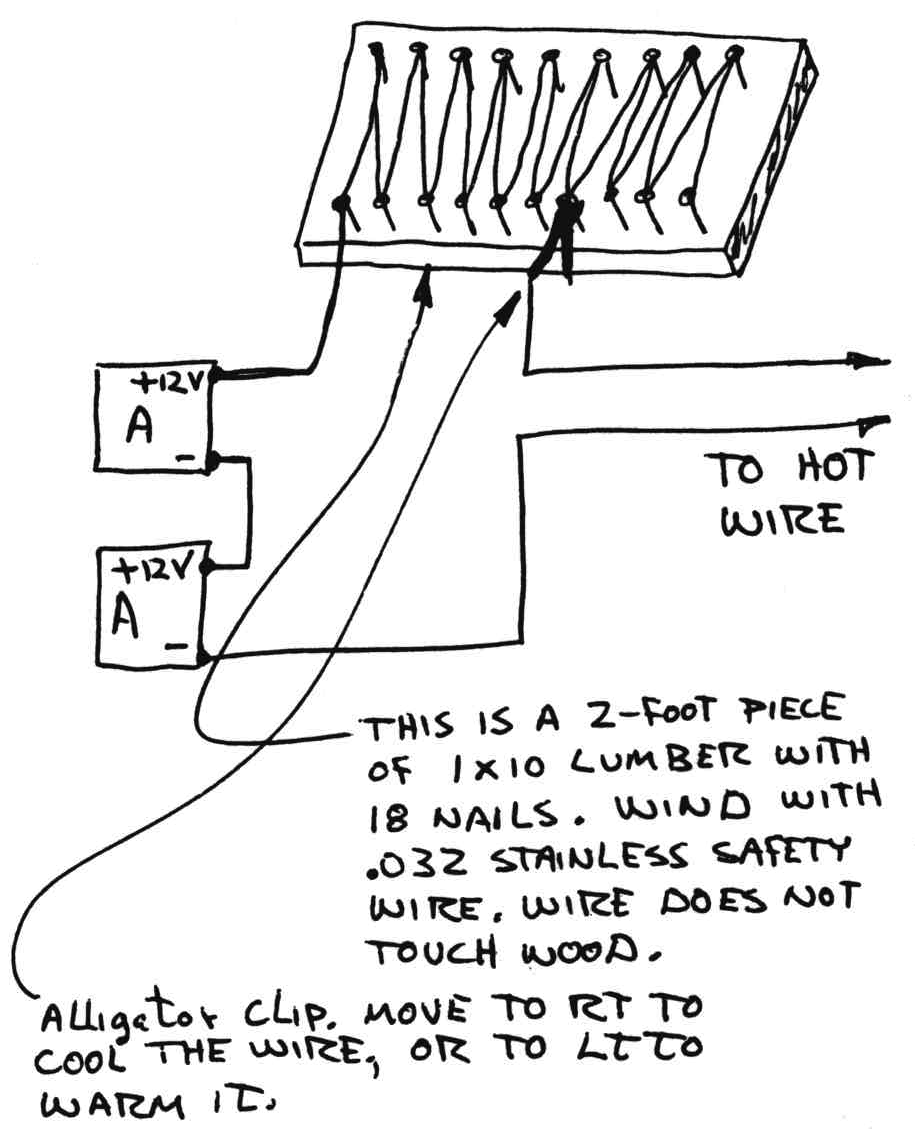 +12V
A
-
+12V
A
-
TO HOT
WIRE
THIS IS A 2-FOOT PIECE
OF 1X10 LUMBER WITH
18 NAILS. WIND WITH
.032 STAINLESS SAFETY
WIRE. WIRE DOES NOT
TOUCH WOOD.
Alligator CLIP. MOVE TO RT TO
COOL THE WIRE, OR TO LT TO
WARM IT.